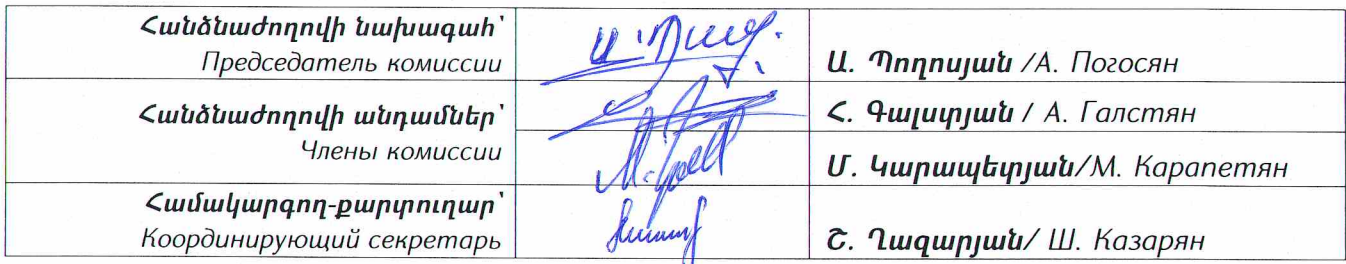 Հանձնաժողովի նախագահ՝
Председатель комиссии
Ա. Պողոսյան /А. Погосян
Հանձնաժողովի անդամներ՝
Члены комиссии
Հ. Գալստյան / А. Галстян
Մ. Կարապետյան/М. Карапетян
Համակարգող-քարտուղար՝
Координирующий секретарь
Շ. Ղազարյան/ Ш. Казарян